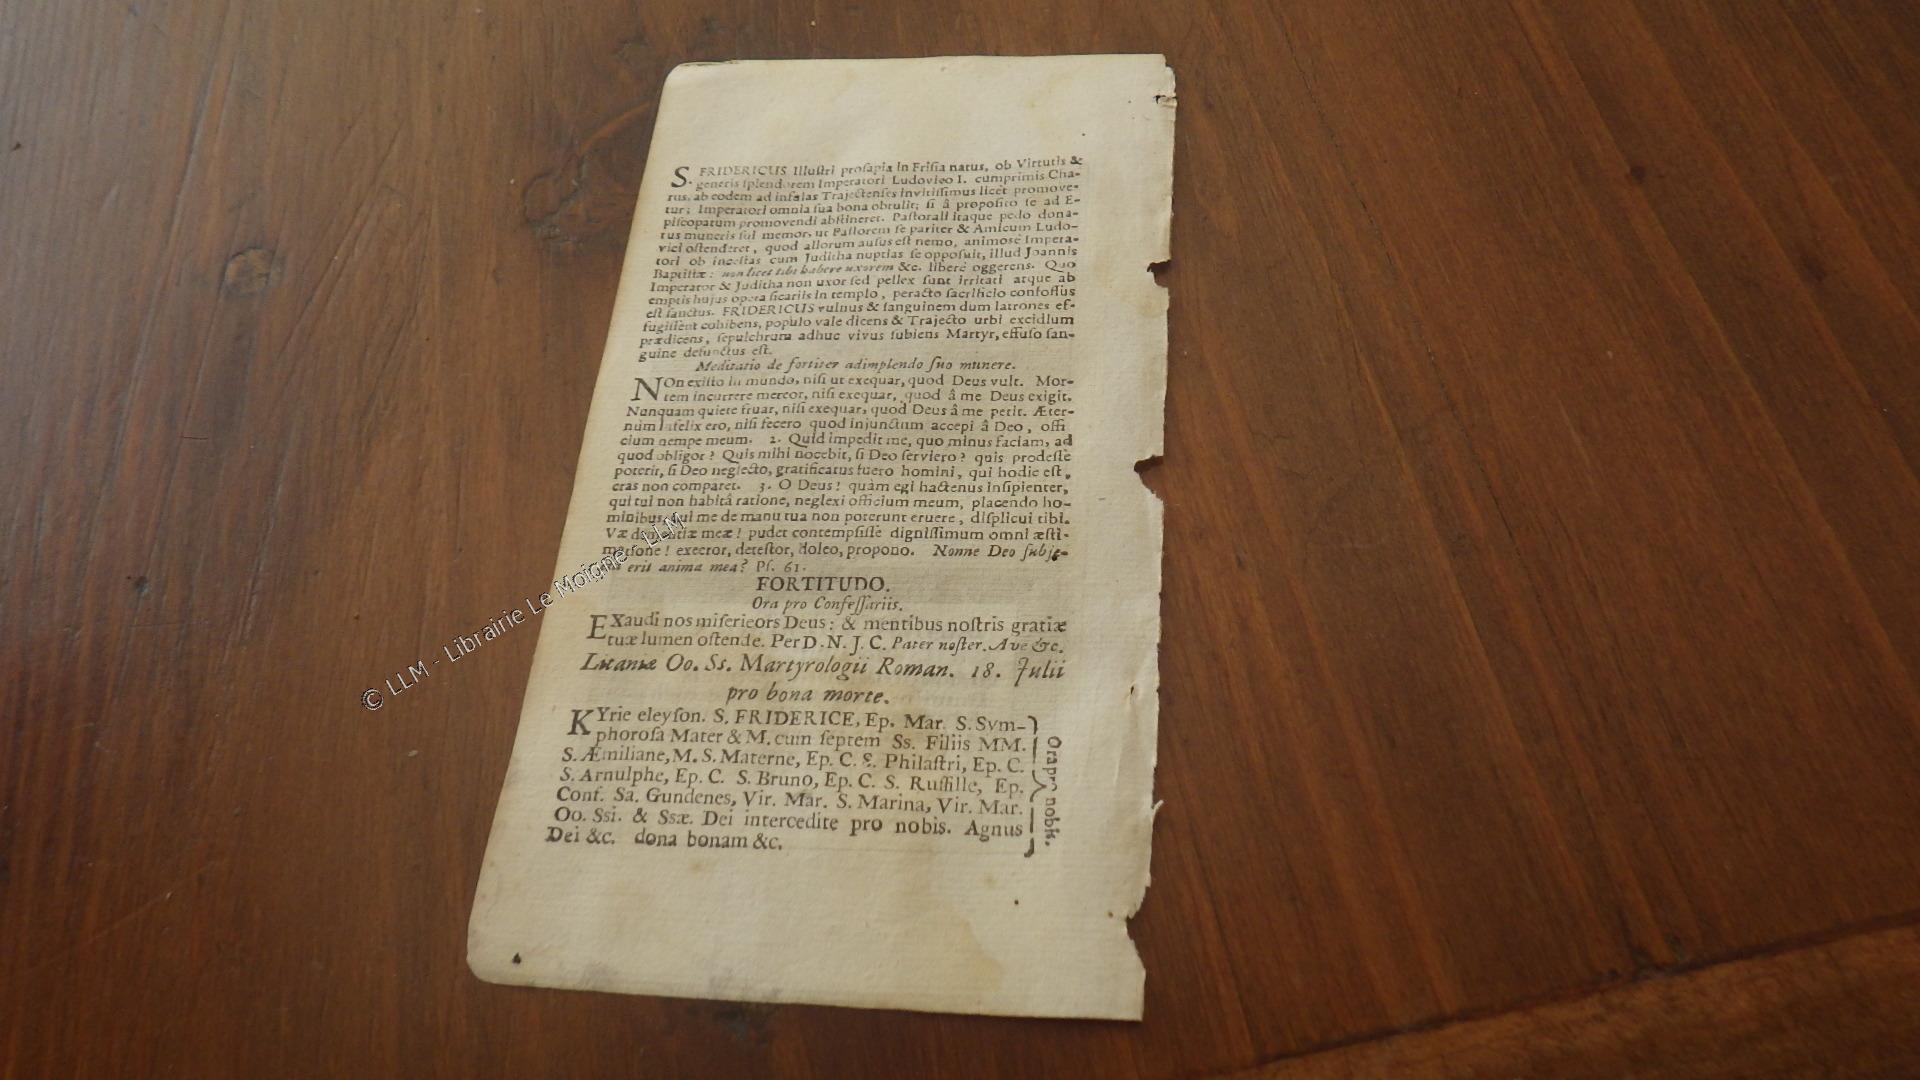 S. FRIDERICUS Illuſtri proſapia in Friſia natus, ob Virtutis &
generis ſplendorem Imperatori Ludovico I. cumprimis Cha-
rus, ab eodem ad infulas Trajectenſes invitiſſimus licet promove-
tur; Imperatori omnia ſua bona obtulit; ſi â propoſito ſe ad E-
piſcopatum promovendi abſtineret. Paſtorali itaque pedo dona-
tus muneris ſui memor, ut Paſtorem ſe pariter & Amicum Ludo-
vici oſtenderet, quod aliorum auſus eſt nemo, animosè Impera-
tori ob inceſtas cum Juditha nuptias ſe oppoſuit, illud Joannis
Baptiſtæ: non licet tibi habere uxorem &c. liberè oggerens. Quo
Imperator & Juditha non uxor ſed pellex ſunt irritati atque ab
emptis hujus opera ſicariis in templo, peracto ſacrificio confoſſus
eſt ſanctus. FRIDERICUS vulnus & ſanguinem dum latrones ef-
fugiſſent cohibens, populo vale dicens & Trajecto urbi excidium
prædicens, ſepulchrum adhuc vivus ſubiens Martyr, effuſo ſan-
guine defunctus eſt.
Meditatio de fortiter adimplendo ſuo munere.
NOn exiſto in mundo, niſi ut exequar, quod Deus vult. Mor-
tem incurrere mereor, niſi exequar, quod â me Deus exigit.
Nunquam quiete fruar, niſi exequar, quod Deus â me petit. Æter-
num infelix ero, niſi fecero quod injunctum accepi â Deo, offi
cium nempe meum. 2. Quid impedit me, quo minus faciam, ad
quod obligor? Quis mihi nocebit, ſi Deo ſerviero? quis prodeſſe
poterit, ſi Deo neglecto, gratificatus fuero homini, qui hodie eſt,
cras non comparet. 3. O Deus! quàm egi hactenus inſipienter,
qui tui non habitâ ratione, neglexi officium meum, placendo ho-
minibus, qui me de manu tua non poterunt eruere, diſplicui tibi.
Væ meæ! pudet contempſiſſe digniſſimum omni æſti-
matione! execror, deteſtor, doleo, propono. Nonne Deo ſubje-
erit anima mea? Pſ. 61.
FORTITUDO.
Ora pro Confeſſariis.
EXaudi nos miſericors Deus: & mentibus noſtris gratiæ
tuæ lumen oſtende. Per D. N. J. C. Pater noſter. Ave &c.
Litaniæ Oo. Ss. Martyrologii Roman. 18. Julii
pro bona morte.
KYrie eleyſon. S. FRIDERICE, Ep. Mar. S. Sym-
phoroſa Mater & M. cum ſeptem Ss. Filiis MM.
S. Æmiliane, M. S. Materne, Ep. C. S. Philaſtri, Ep. C.
S. Arnulphe, Ep. C. S. Bruno, Ep. C. S. Ruffille, Ep.
Conf. Sa. Gundenes, Vir. Mar. S. Marina, Vir. Mar.
Oo. Ssi. & Ssæ. Dei intercedite pro nobis. Agnus
Dei &c. dona bonam &c.
Ora pro nobis.
© LLM - Librairie Le Moigne - LLM